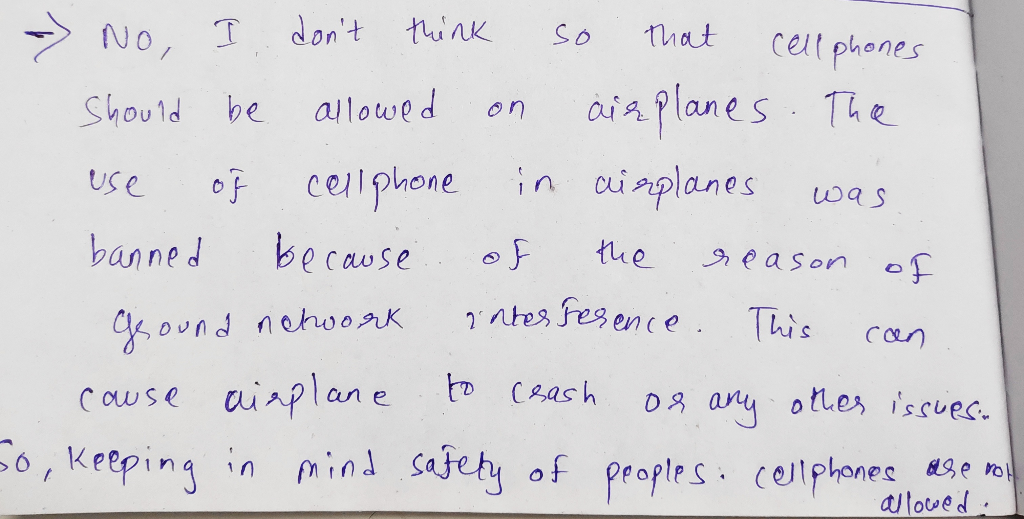 → No, I don't think so that cellphones
should be allowed on airplanes. The
use of cellphone in airplanes was
banned because of the reason of
ground network interference. This can
cause airplane to crash or any other issues.
So, keeping in mind safety of peoples. cellphones are not
allowed.